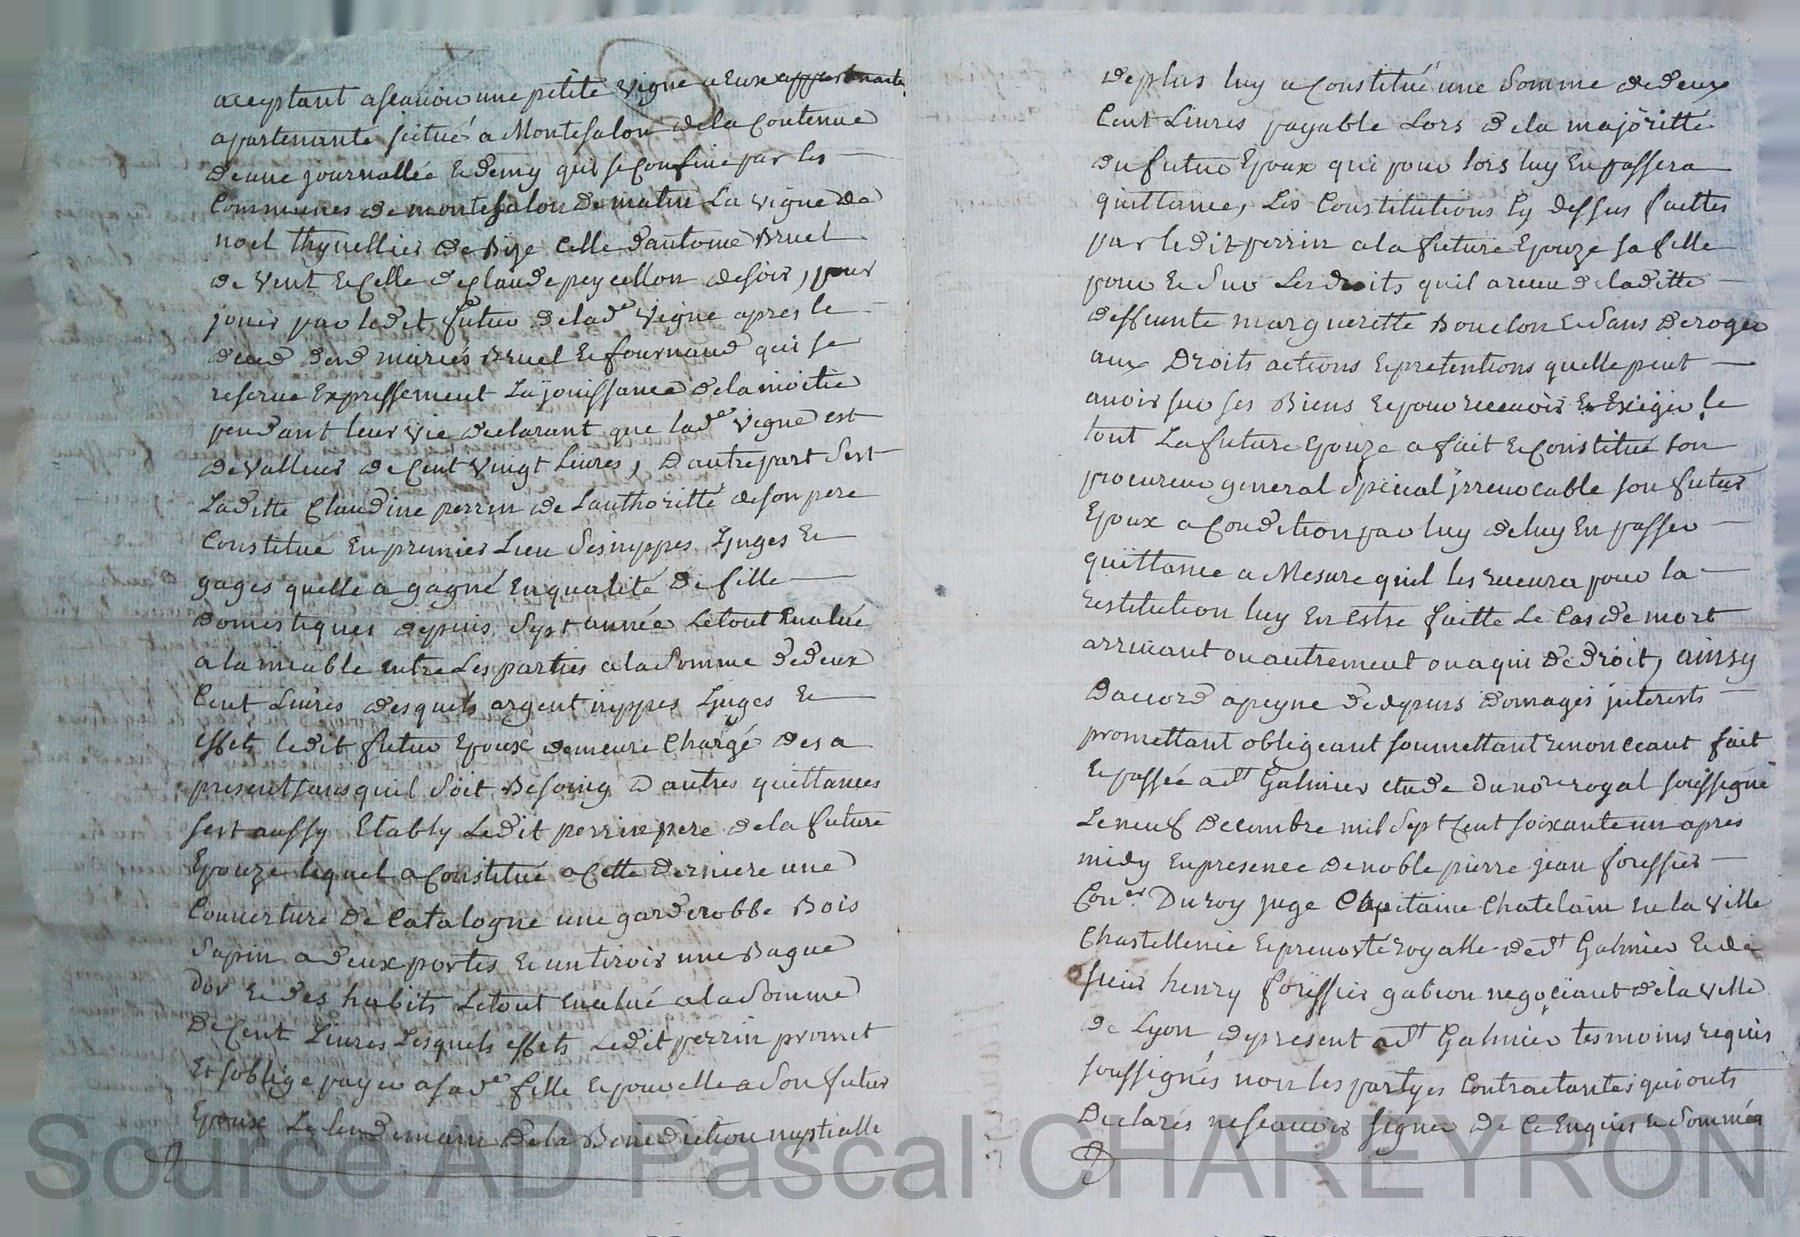 aceptant ascavoir une petite vigne a Eux appartenante
apartenante scitué a Montesalon de la Contenue
d'une journallée Et demy qui se Confine par les
Communes de montesalon De matin La vigne de
noel thynellier de Bize Celle d'antoine Bruel
de vent Et Celle de Claude peycellon de soir, pour
jouir par ledit futur de lade vigne apres le
deced desd mariés Bruel Et fournand qui se
reserve Expressement La jouissance de la moitié
pendant leur vie declarant que lade vigne est
de valleur de Cent vingt Livres, D'autre part s'est
Laditte Claudine perrin de L'authoritté de son pere
Constitué En premier Lieu ses nippes Linges Et
gages quelle a gagné En qualité de fille
domestiques depuis sept année Le tout Evalué
a la miable entre Les parties a la somme de deux
Cent Livres desquels argent nippes Linges Et
effets ledit futur Epoux demeure Chargé des a
present sans quil soit Besoing d'autres quittances
sest aussy Etably Ledit perrin pere de la future
Epouze lequel a Constitué a Cette derniere une
Couverture de Catalogne une garderobbe Bois
sapin a deux portes Et un tiroir une Bague
d'or Et des habits Le tout Evalué a la somme
de Cent Livres Lesquels effets Ledit perrin promet
Et soblige payer a sade fille Et pour elle a son futur
Epoux Le lendemain de la Benediction nuptialle
de plus luy a Constitué une somme de deux
Cent Livres payable Lors de la majoritté
du futur Epoux qui pour lors luy En passera
quittance, Les Constitutions Cy dessus faittes
par ledit perrin a la future Epouze sa fille
pour Et sur Les droits quil a receu de laditte
deffunte marguerette Bouclon Et sans deroger
aux droits actions Et pretentions quelle peut
avoir sur ses Biens Et pour recevoir Et Exiger le
tout La future Epouze a fait Et Constitué son
procureur general special jrrevocable son futur
Epoux a Condition par luy de luy En passer
quittance a Mesure quil les recevra pour la
restitution luy En Estre faitte Le Cas de mort
arrivant ou autrement ou a qui de droit, ainsy
D'accord a peyne de depens domages jnterests
promettant obligeant soumettant renonceant fait
Et passée a St Galmier etude du nore royal soussigné
Le neuf decembre mil sept Cent soixante un apres
midy En presence de noble pierre jean foressier
Coner Du roy juge Capitaine Chatelain En la ville
Chastellenie Et prevosté royalle de St Galmier Et de
sieur henry foressier gabion negociant de la ville
de Lyon de present a St Galmier tesmoins requis
soussignés non les partyes Contractantes qui onts
Declarés ne scavoir signer de Ce Enquis Et sommés
Source AD Pascal CHAREYRON